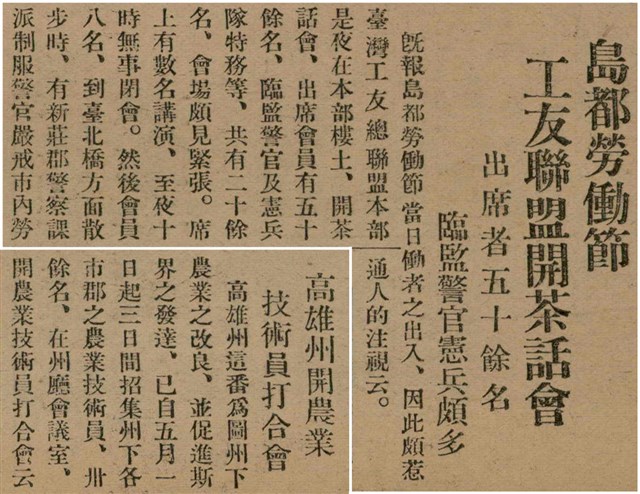 島都勞働節
工友聯盟開茶話會
出席者五十餘名
臨監警官憲兵頗多
既報島都勞働節當日
臺灣工友總聯盟本部
是夜在本部樓上、開茶
話會、出席會員有五十
餘名、臨監警官及憲兵
隊特務等、共有二十餘
名、會場頗見緊張。席
上有數名講演、至夜十
時無事閉會。然後會員
八名、到臺北橋方面散
步時、有新莊郡警察課
派制服警官嚴戒市內勞
働者之出入、因此頗惹
通人的注視云。
高雄州開農業
技術員打合會
高雄州這番爲圖州下
農業之改良、並促進斯
界之發達、已自五月一
日起三日間招集州下各
市郡之農業技術員、卅
餘名、在州廳會議室、
開農業技術員打合會云